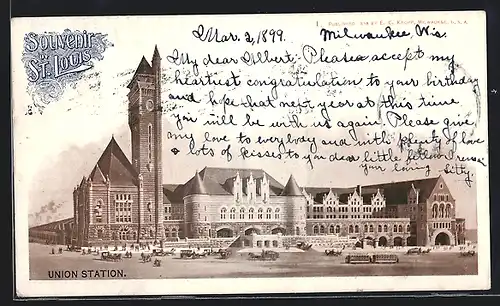 Published 1898 by E. C. Kropp, Milwaukee, U.S.A.
Souvenir
of
St. Louis
Mar. 2, 1899. Milwaukee, Wis.
My dear Albert. Please accept my
heartiest congratulation to your birthday
and hope that next year at this time
you will be with us again. Please give
my love to everybody and with plenty of love
& lots of kisses to you dear little fellow
your loving
UNION STATION.